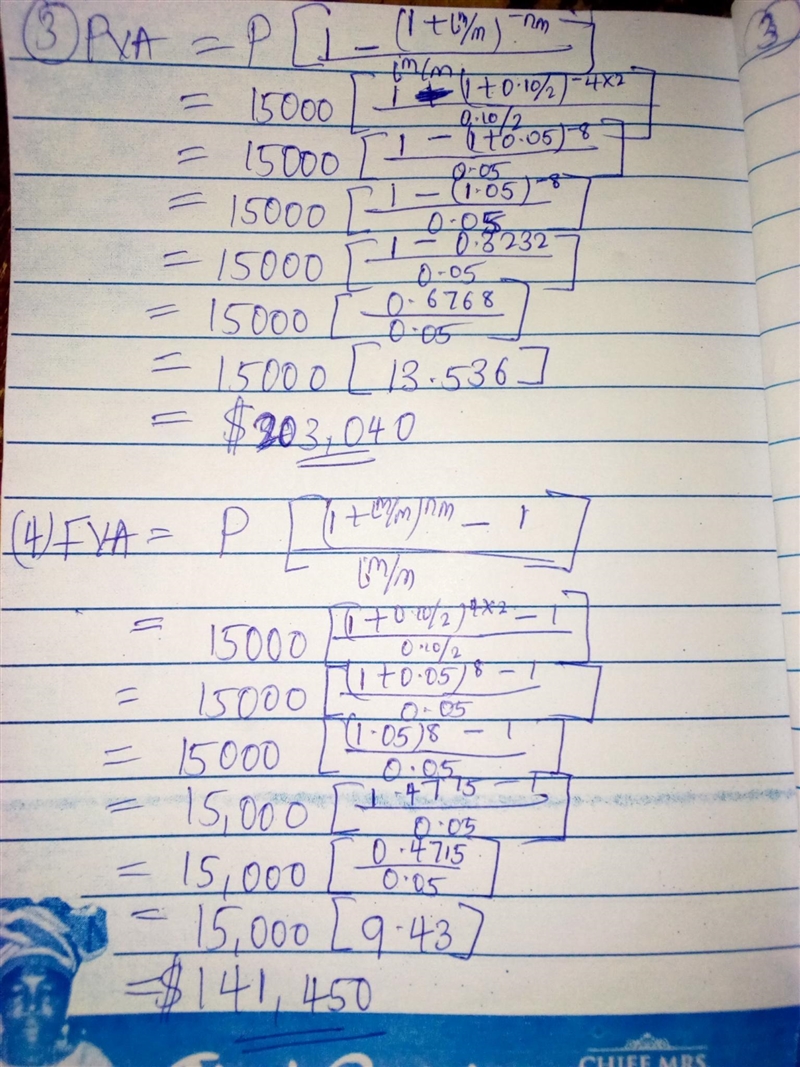 (3) PVA = P [1 - (1 + in/m)^-nm / in/m]
= 15000 [1 - (1 + 0.10/2)^-4×2 / 0.10/2]
= 15000 [1 - (1+0.05)^-8 / 0.05]
= 15000 [1 - (1.05)^-8 / 0.05]
= 15000 [1 - 0.3232 / 0.05]
= 15000 [0.6768 / 0.05]
= 15000 [13.536]
= $203,040
(4) FVA = P [(1 + in/m)^nm - 1 / in/m]
= 15000 [(1 + 0.10/2)^4×2 - 1 / 0.10/2]
= 15000 [(1 + 0.05)^8 - 1 / 0.05]
= 15000 [(1.05)8 - 1 / 0.05]
= 15,000 [1.4775 - 1 / 0.05]
= 15,000 [0.4715 / 0.05]
= 15,000 [9.43]
= $141,450
CHIEF MRS
3